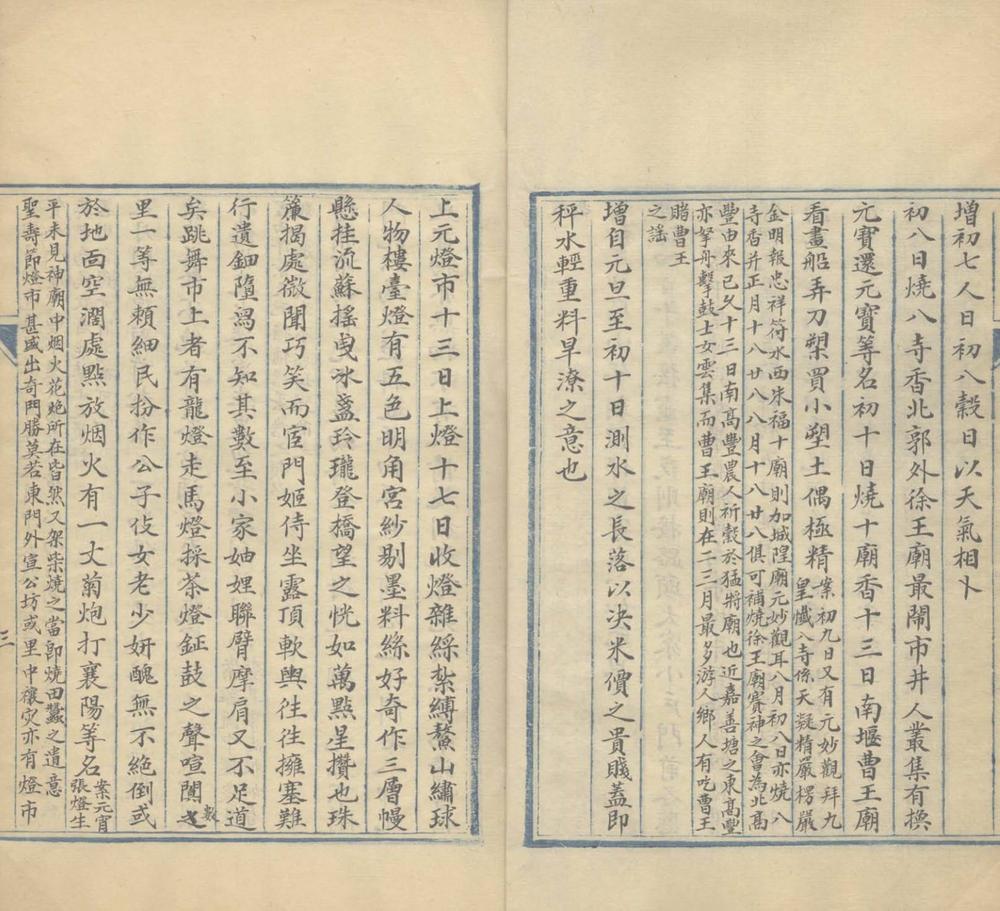 增初七人日初八穀日以天氣相卜
初八日燒八寺香北郭外徐王廟最鬧市井人叢集有換
元寶還元寶等名初十日燒十廟香十三日南堰曹王廟
看畫船弄刀槊買小塑土偶極精案初九日又有元妙觀拜九
皇懺八寺係天凝精嚴楞嚴
金明報忠祥符水西朱福十廟則加城隍廟元妙觀耳八月初八日亦燒八
寺香并正月十八廿八八月十八廿八俱可補燒徐王廟賽神之會為北高
豐由來已久十三日南高豐農人祈穀於猛將廟也近嘉善塘之東高豐
亦拏舟擊鼓士女雲集而曹王廟則在二三月最多游人鄉人有吃曹王
賠曹王
之謡
增自元旦至初十日測水之長落以決米價之貴賤蓋即
秤水輕重料旱潦之意也
上元燈市十三日上燈十七日收燈雜綵紮縛鰲山繡球
人物樓臺燈有五色明角宮紗剔墨料絲好奇作三層幔
懸挂流蘇搖曳氷盞玲瓏登橋望之恍如萬點星攢也珠
簾揭處微聞巧笑而官門姬侍坐露頂軟輿往往擁塞難
行遺鈿墮舄不知其數至小家妯娌聯臂摩肩又不足道
矣跳舞市上者有龍燈走馬燈採茶燈鉦鼓之聲喧闐數
里一等無賴細民扮作公子伎女老少妍醜無不絕倒或
於地面空濶處點放烟火有一丈菊炮打襄陽等名案元宵
張燈生
平未見神廟中烟火花炮所在皆然又架柴燒之當即燒田蠶之遺意
聖壽節燈市甚盛出奇鬥勝莫若東門外宣公坊或里中禳灾亦有燈市
三